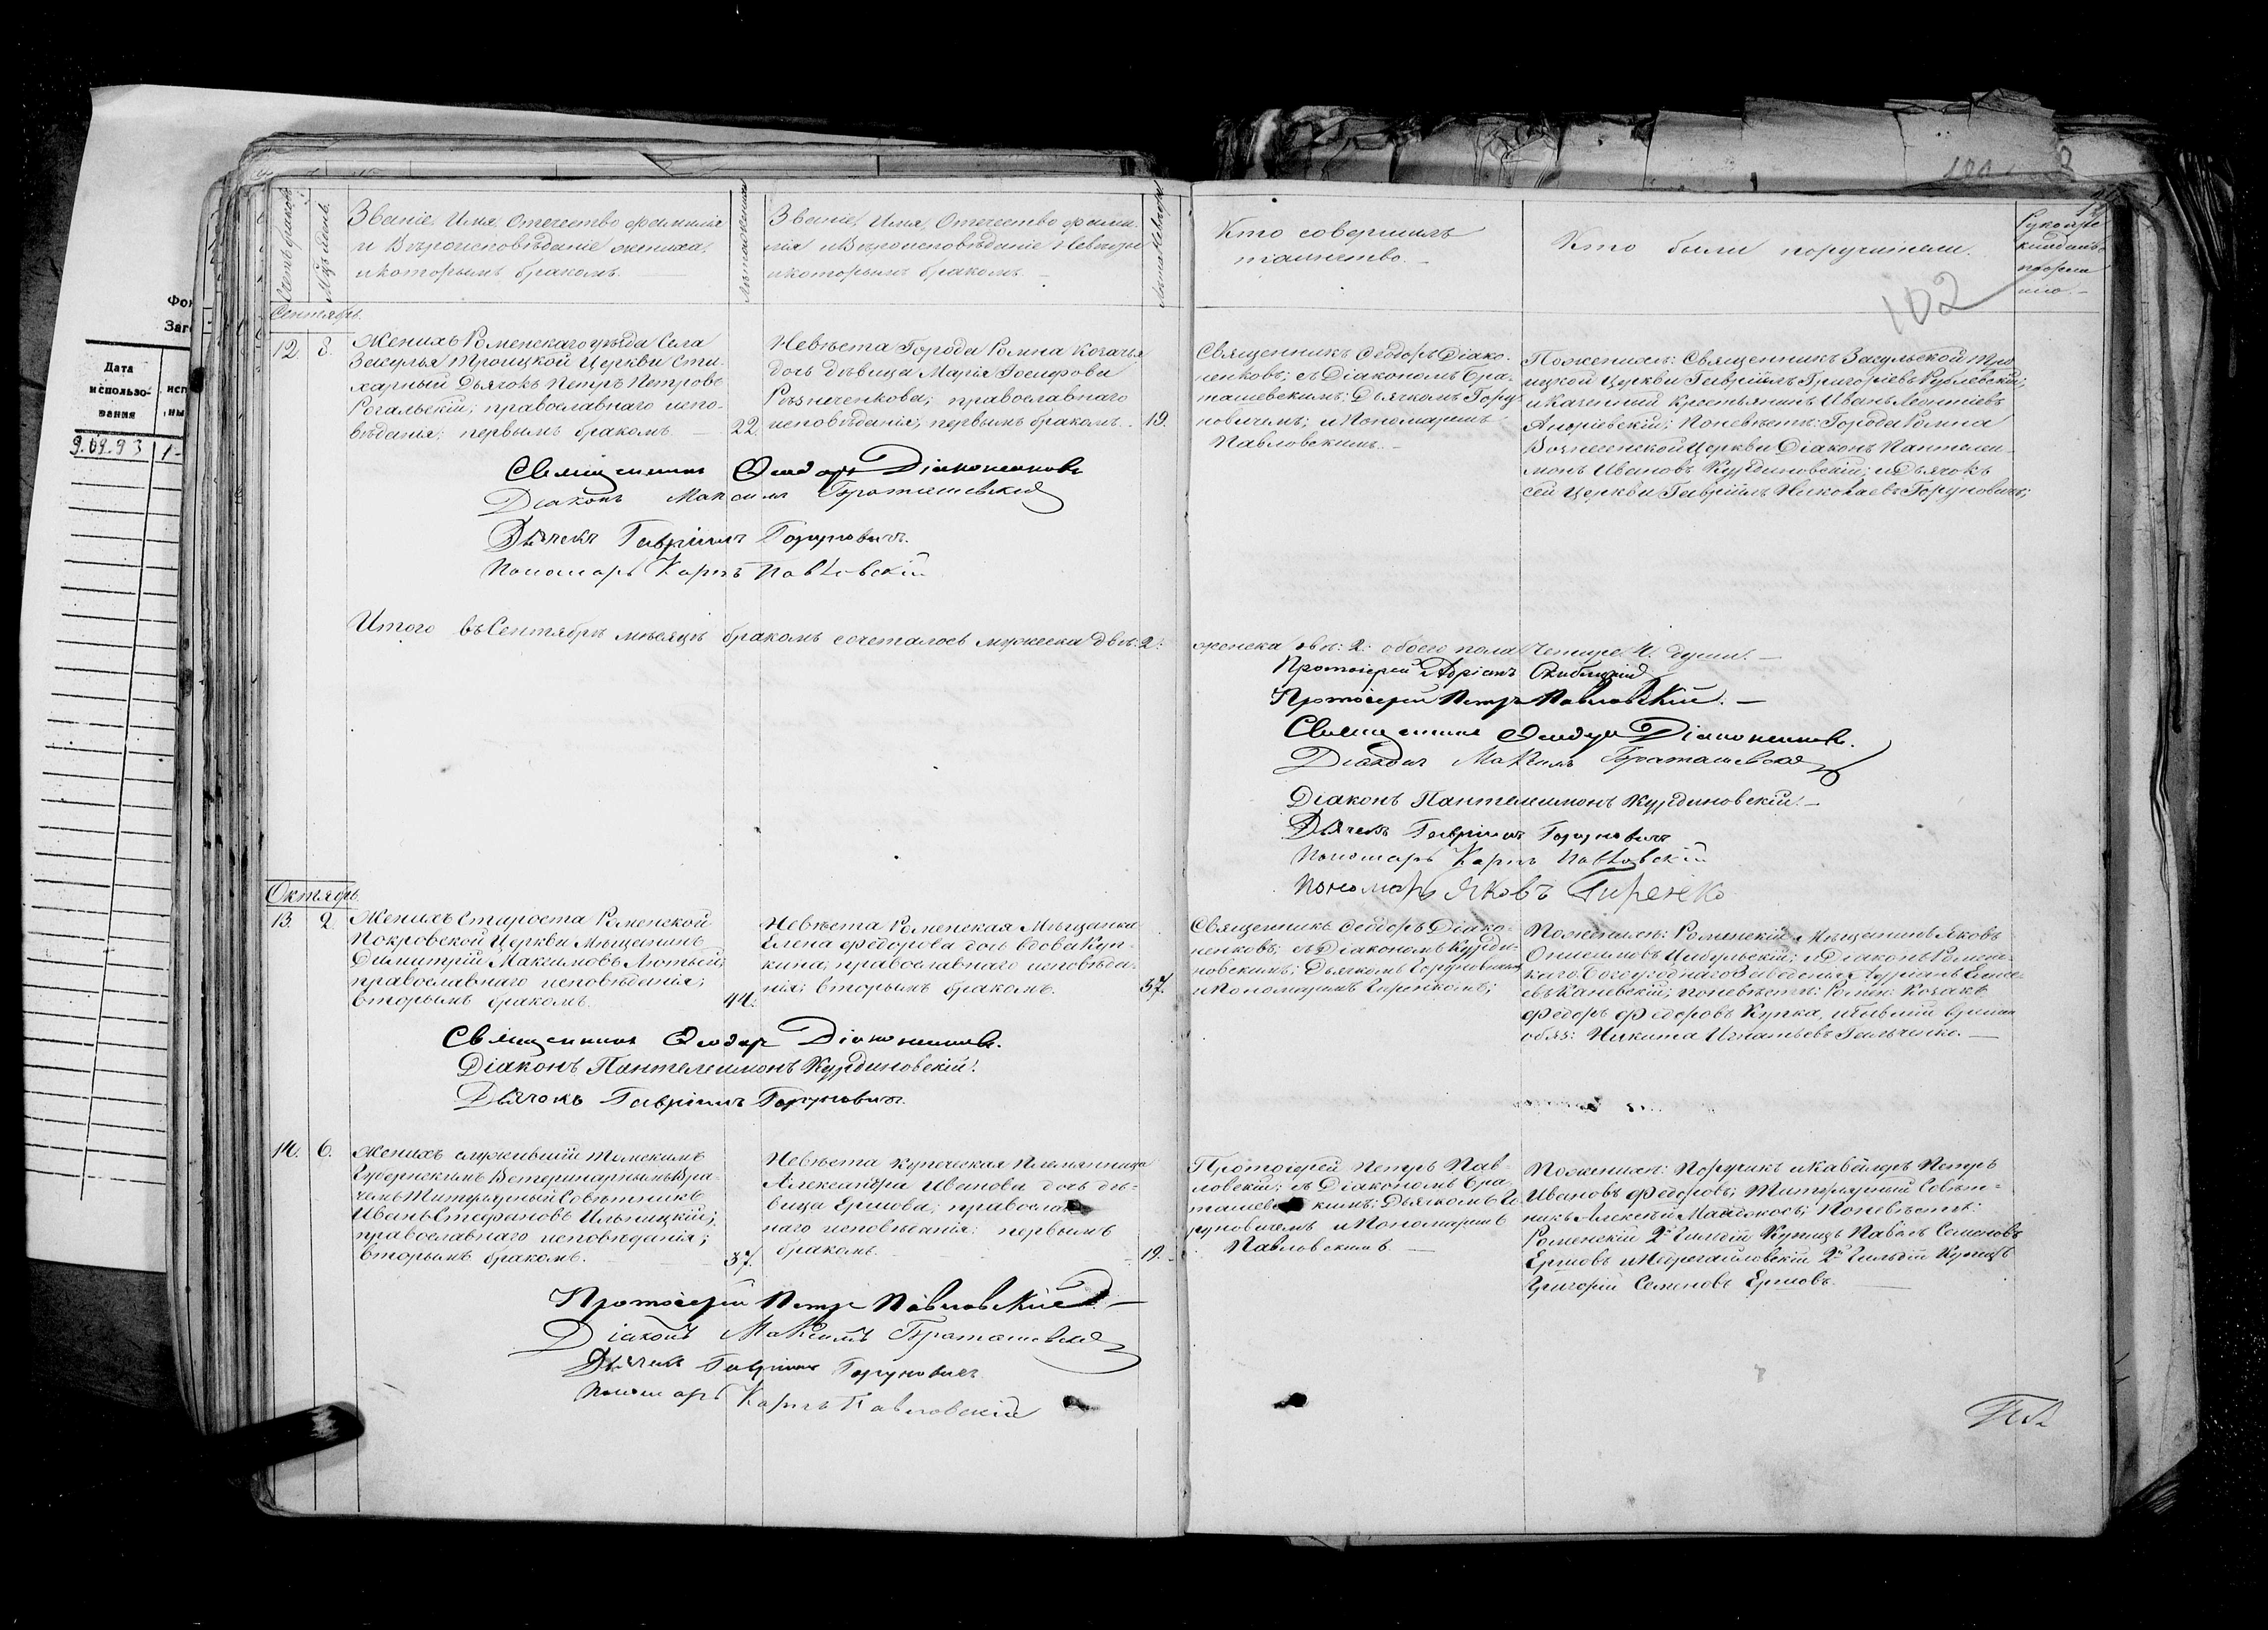 Фон
Заго
Дата
использо-
вания
исп
ны
9.09.93 1-
Счетъ браковъ
Мѣсяц. день.
Званіе, Имя, Отечество фамилія
и Вѣроисповѣданіе жениха,
и которымъ бракомъ.
Лѣта жениха
Званіе, Имя, Отечество фами-
лія и Вѣроисповѣданіе Невѣсты
и которымъ бракомъ.
Лѣта Невѣсты
Кто совершилъ
таинство.
Кто были поручители.
102
Сентябрь.
12. 8.
Женихъ Роменскаго уѣзда Села
Засулья Троицкой Церкви Сти-
харный Дьячокъ Петръ Петровъ
Рогальскій; православнаго испо-
вѣданія; первымъ бракомъ. 22.
Невѣста Города Ромна Козачья
дочь дѣвица Марія Іосифова
Рѣзниченкова; православнаго
исповѣданія; первымъ бракомъ. 19.
Священникъ Ѳеодоръ Діако-
ненковъ; съ Діакономъ Бра-
ташевскимъ; Дьячкомъ Гору-
новичемъ; и Пономаремъ
Павловскимъ.
По женихѣ: Священникъ Засульской Тро-
ицкой Церкви Гавріилъ Григоріевъ
и Казенный крестьянинъ Иванъ Леонтіевъ
По невѣстѣ: Города Ромна
Вознесенской Церкви Діаконъ Пантелеи-
монъ Ивановъ Курдиновскій; и Дьячокъ
сей Церкви Гавріилъ Николаевъ Горуновичъ;
Священникъ Ѳеодоръ Діаконенковъ
Діаконъ Максимъ Браташевскій
Дьячекъ Гавріилъ Горуновичъ.
Пономарь Карпъ Павловскій
Итого въ Сентябрѣ мѣсяцѣ бракомъ сочеталось мужеска двѣ: 2:
женска двѣ: 2: обоего пола Четыре 4. души.
Протоіерей Адріанъ
Протоіерей Петръ Павловскій.
Священникъ Ѳеодоръ Діаконенковъ.
Діаконъ Максимъ Браташевскій
Діаконъ Пантелеимонъ Курдиновскій.
Дьячекъ Гавріилъ Горуновичъ
Пономарь Карпъ Павловскій
Пономарь Яковъ Гиренко
Октябрь.
13. 2.
Женихъ Староста Роменской
Покровской Церкви Мѣщанинъ
Димитрій Максимовъ Лютый;
православнаго исповѣданія;
вторымъ бракомъ. 44.
Невѣста Роменская Мѣщанка
Елена Федорова дочь вдова Куп-
кина; православнаго исповѣда-
нія; вторымъ бракомъ. 37.
Священникъ Ѳеодоръ Діако-
ненковъ; съ Діакономъ Курди-
новскимъ; Дьячкомъ Горуновичемъ
и Пономаремъ Гиренкомъ;
По женихѣ: Роменскій Мѣщанинъ Яковъ
Онисимовъ Цыбульскій; и Діаконъ Ромен-
каго Богоугоднаго Заведенія Адріанъ Елисе-
евъ Каневскій; по невѣстѣ: Ромен: Козакъ
Федоръ Федоровъ Купка, и бывшій времен
обяз: Никита Игнатьевъ Гальченко.
Священникъ Ѳеодоръ Діаконенковъ.
Діаконъ Пантелеимонъ Курдиновскій.
Дьячокъ Гавріилъ Горуновичъ.
14. 6.
Женихъ служившій Томскимъ
Губернскимъ Ветеринарнымъ Вра-
чемъ Титулярный Совѣтникъ
Иванъ Стефановъ Ильницкій;
православнаго исповѣданія;
вторымъ бракомъ. 37.
Невѣста купеческая племянница
Александра Иванова дочь дѣ-
вица Ершова; православ-
наго исповѣданія: первымъ
бракомъ. 19.
Протоіерей Петръ Пав-
ловскій; съ Діакономъ Бра-
ташевскимъ; Дьячкомъ Го-
руновичемъ и Пономаремъ
Павловскимъ.
По женихѣ: Поручикъ и Кавалеръ Петръ
Ивановъ Федоровъ; Титулярный Совѣт-
никъ Алексѣй По невѣстѣ:
Роменскій 2й Гильдіи Купецъ Павелъ Семеновъ
Ершовъ и 2й Гильдіи Купецъ
Григорій Семеновъ Ершовъ.
Протоіерей Петръ Павловскій
Діаконъ Максимъ Браташевскій
Дьячекъ Гавріилъ Горуновичъ
Пономарь Карпъ Павловскій